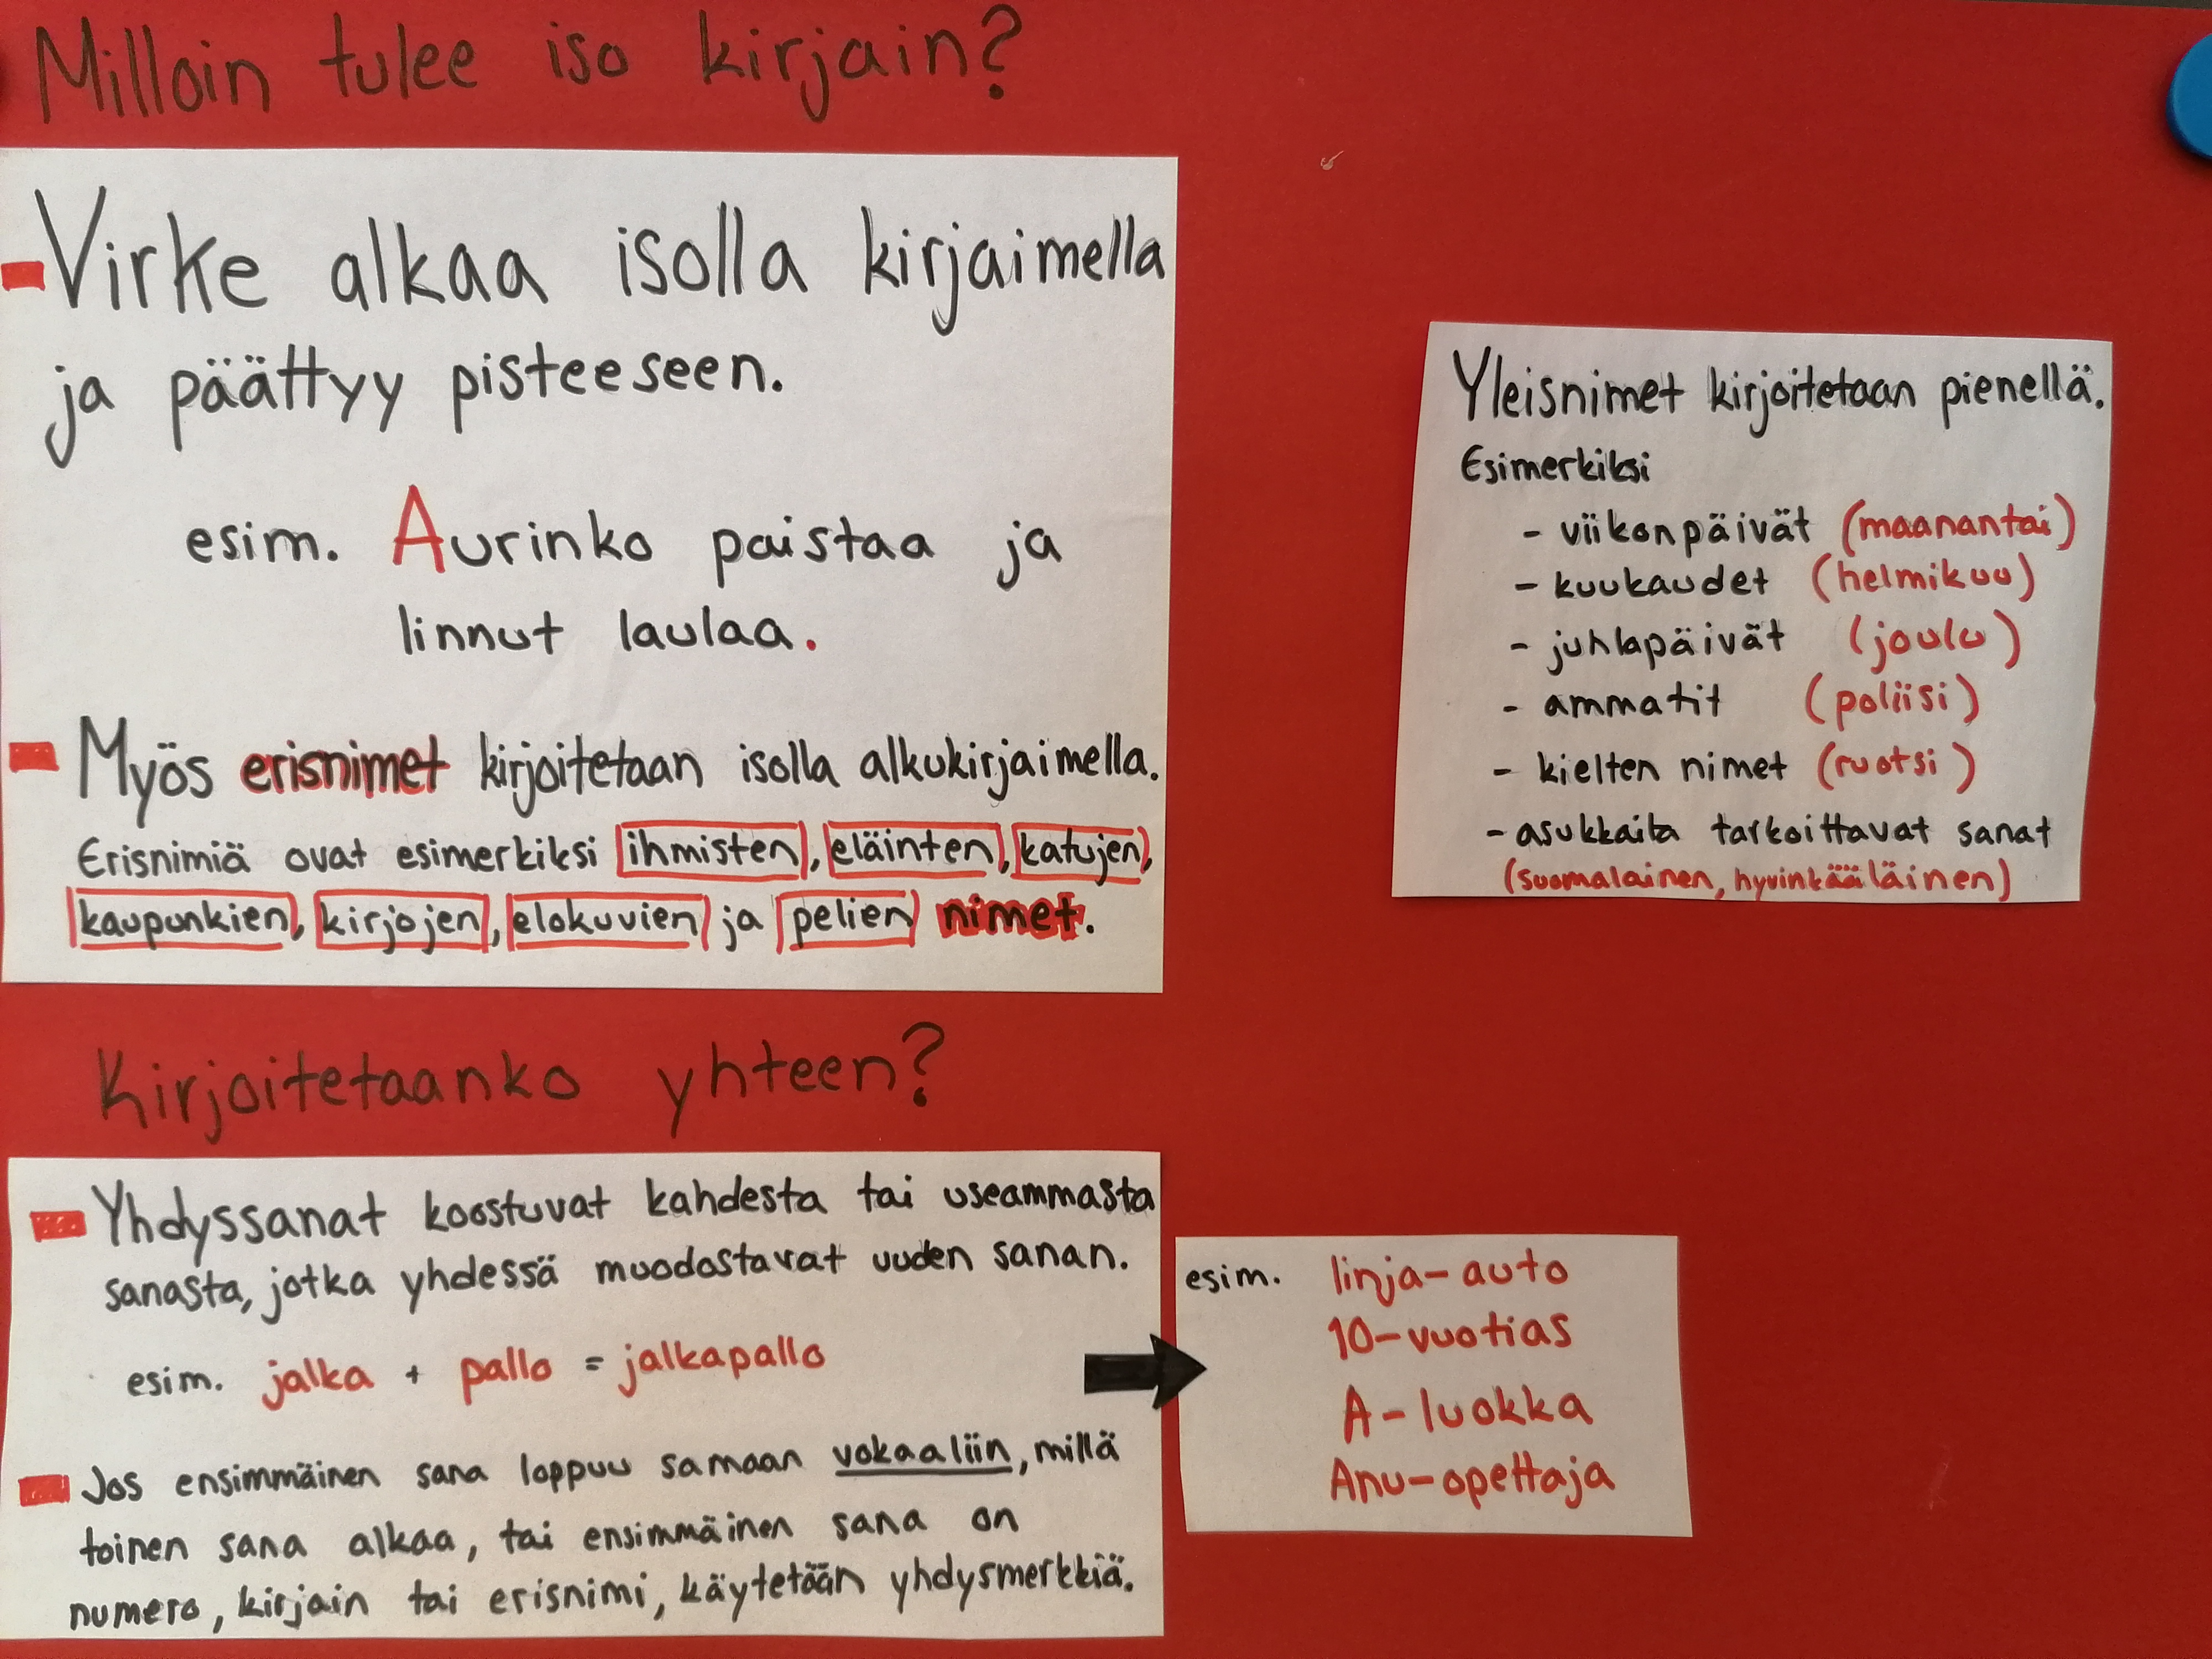 Milloin tulee iso kirjain?
- Virke alkaa isolla kirjaimella
ja päättyy pisteeseen.
esim. Aurinko paistaa ja
linnut laulaa.
- Myös erisnimet kirjoitetaan isolla alkukirjaimella.
Erisnimiä ovat esimerkiksi ihmisten, eläinten, katujen,
kaupunkien, kirjojen, elokuvien ja pelien nimet.
Yleisnimet kirjoitetaan pienellä.
Esimerkiksi
- viikonpäivät (maanantai)
- kuukaudet (helmikuu)
- juhlapäivät (joulu)
- ammatit (poliisi)
- kielten nimet (ruotsi)
- asukkaita tarkoittavat sanat
(suomalainen, hyvinkääläinen)
Kirjoitetaanko yhteen?
- Yhdyssanat koostuvat kahdesta tai useammasta
sanasta, jotka yhdessä muodostavat uuden sanan.
esim. jalka + pallo = jalkapallo
- Jos ensimmäinen sana loppuu samaan vokaaliin, millä
toinen sana alkaa, tai ensimmäinen sana on
numero, kirjain tai erisnimi, käytetään yhdysmerkkiä.
esim. linja-auto
10-vuotias
A-luokka
Anu-opettaja